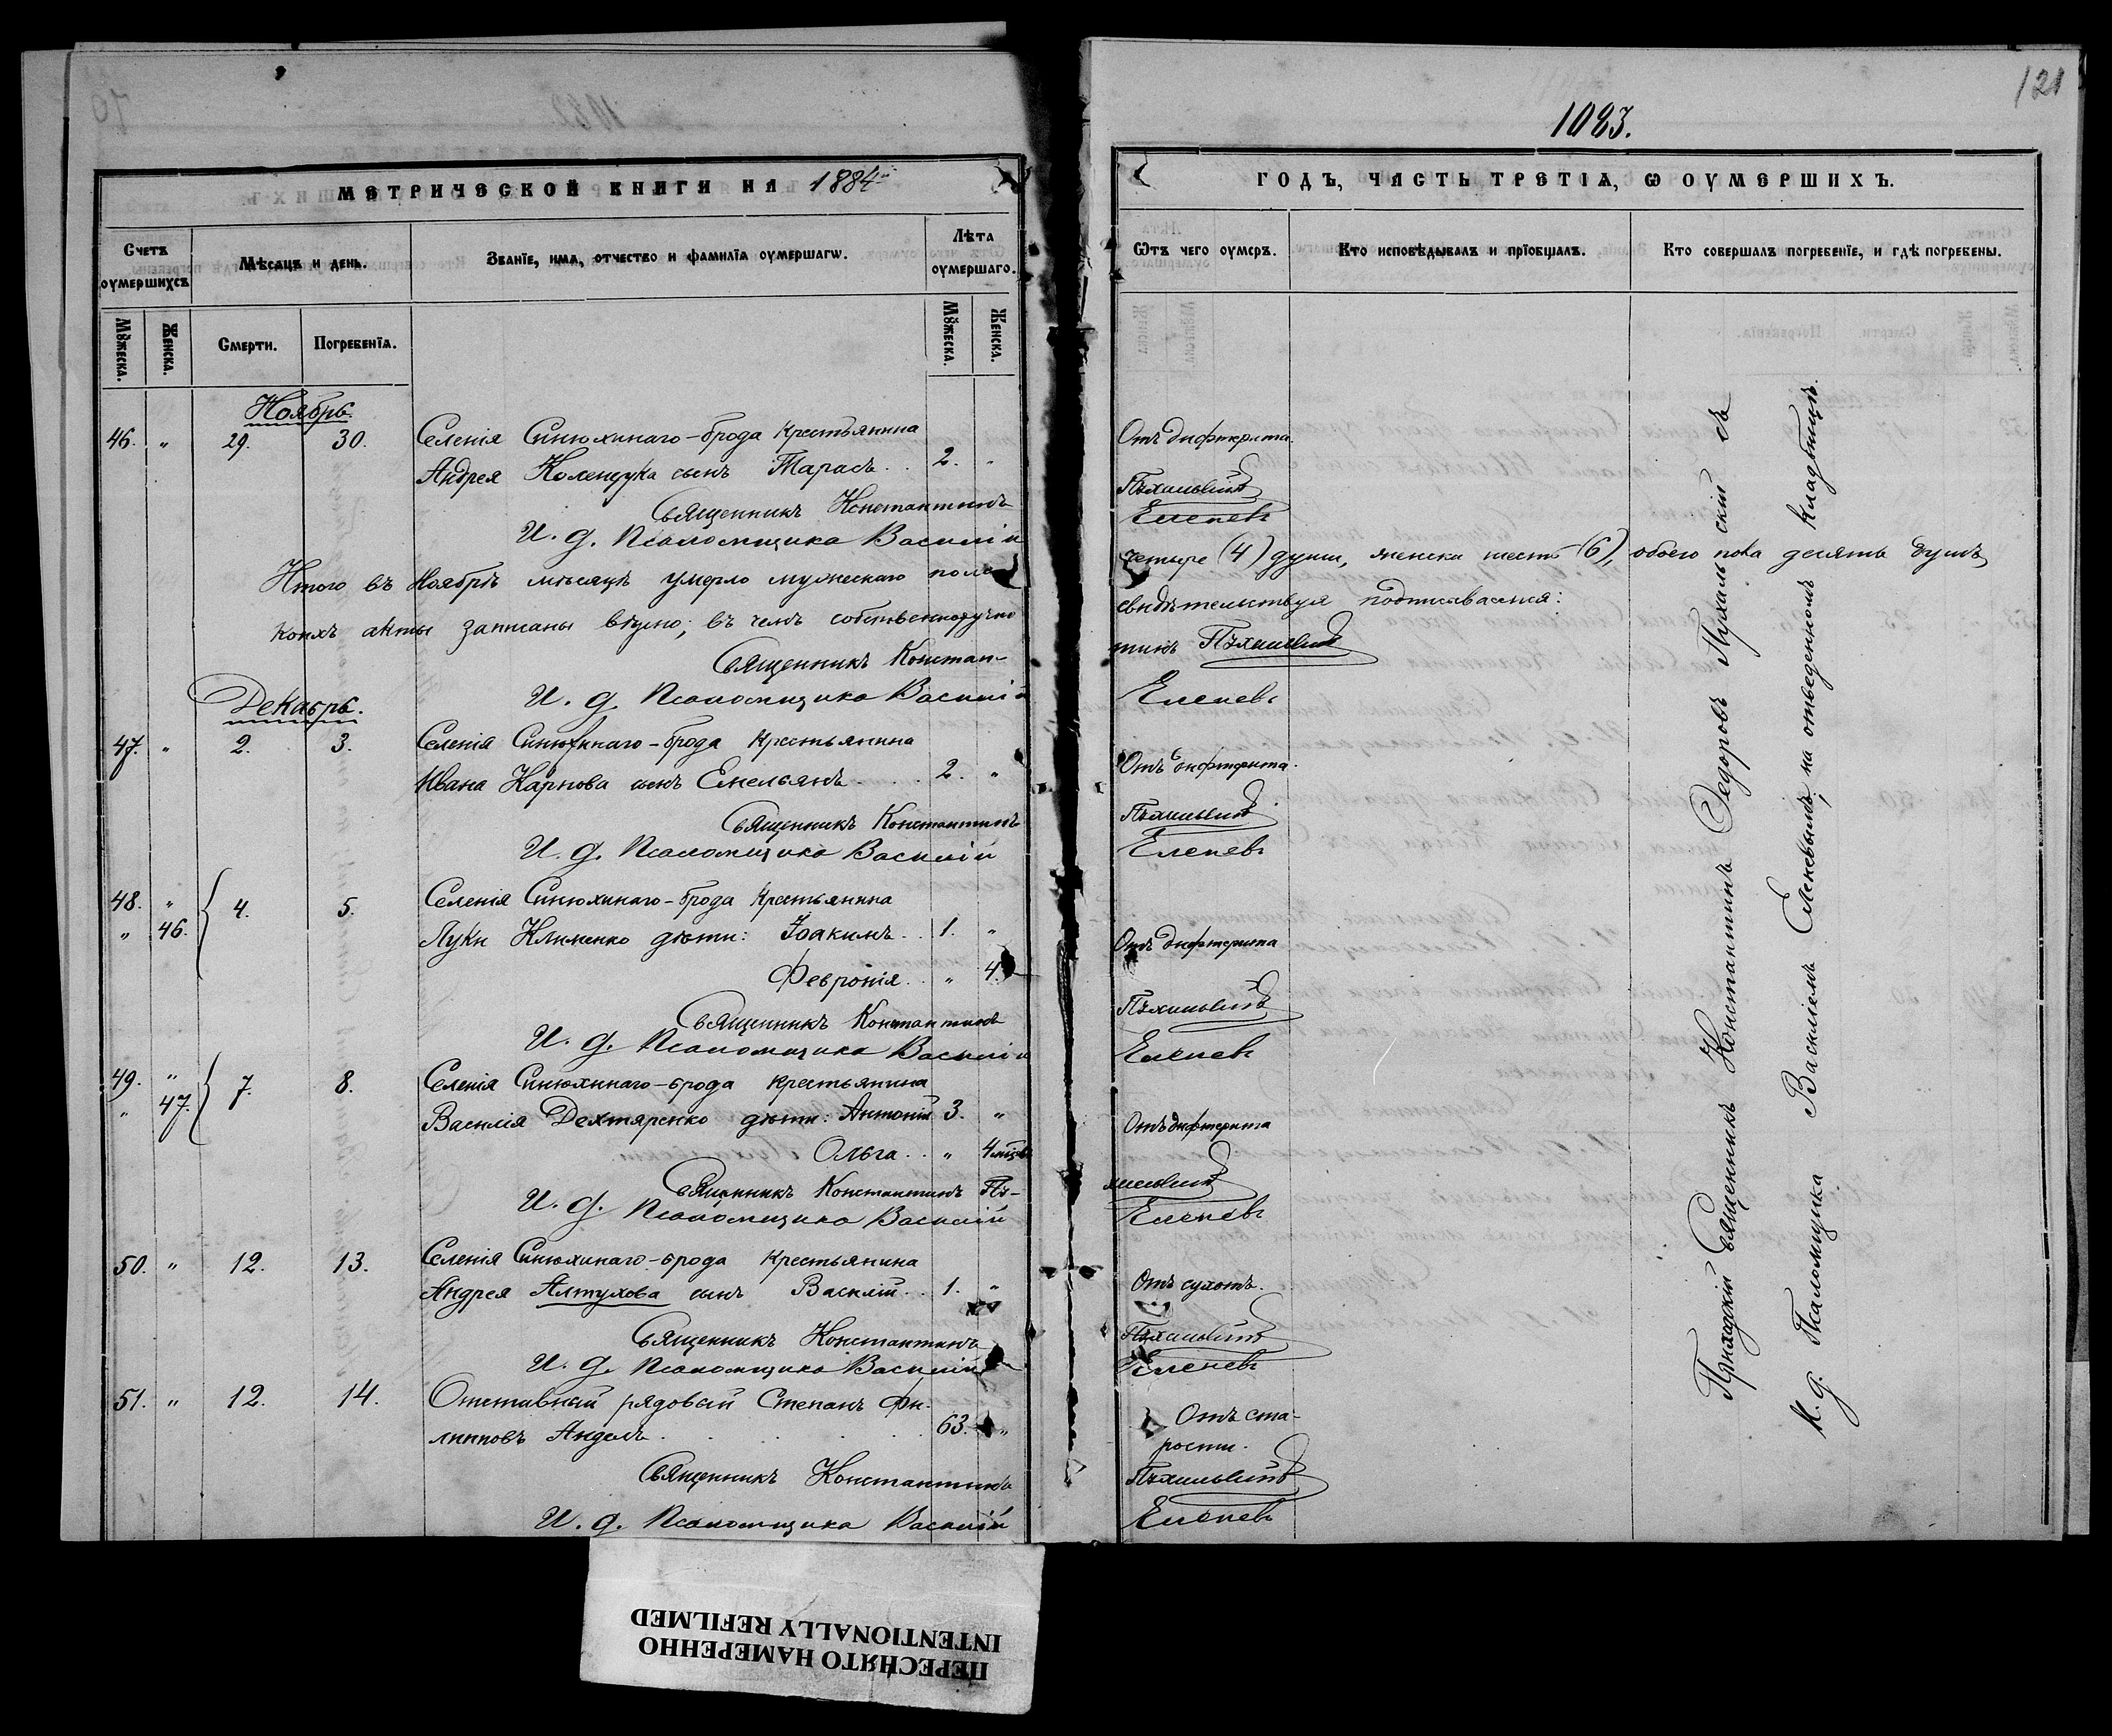 121
1083.
МЕТРИЧЕСКОЙ КНИГИ НА 1884й
ГОДЪ, ЧАСТЬ ТРЕТІѦ, Ѡ ОУМЕРШИХЪ.
Счетъ оумершихъ
Мѣсяцъ и день.
Званїе, имѧ, отчество и фамилїѧ оумершагѡ.
Лѣта оумершаго.
Ѿтъ чего оумеръ.
Кто исповѣдывалъ и прїобщалъ.
Кто совершалъ погребенїе, и гдѣ погребены.
Мꙋжеска.
Женска.
Смерти.
Погребенїѧ.
Мꙋжеска.
Женска.
Ноябрь.
46. " 29. 30. Селенія Синюхинаго-брода крестьянина
Андрея Коленчука сынъ Тарасъ . . 2. " Отъ дифтерита.
Священникъ Константинъ
И. д. Псаломщика Василій Еленевъ
Итого въ Ноябрѣ мѣсяцѣ умерло мужескаго пола четыре (4) души, женска шесть (6), обоего пола десять душъ,
коихъ акты записаны вѣрно; въ чемъ собственноручно свидѣтельствуя подписываемся:
Священникъ Констан-тинъ
И. д. Псаломщика Василій Еленевъ
Декабрь.
47. " 2. 3. Селенія Синюхинаго-брода крестьянина
Ивана Карпова сынъ Емельянъ . . . 2. " Отъ дифтерита.
Священникъ Константинъ
И. д. Псаломщика Василій Еленевъ
48. " 4. 5. Селенія Синюхинаго-брода крестьянина
" 46. Луки Клименко дѣти: Іоакимъ . . 1. " Отъ дифтерита
Февронія . . " 4.
Священникъ Константинъ
И. д. Псаломщика Василій Еленевъ
49. " 7. 8. Селенія Синюхинаго-брода крестьянина
" 47. Василія Дехтяренко дѣти: Антоній 3. " Отъ дифтерита
Ольга . . " 4 мѣсяц.
Священникъ Константинъ
И. д. Псаломщика Василій Еленевъ
50. " 12. 13. Селенія Синюхинаго-брода крестьянина
Андрея Алтухова сынъ Василій . . 1. " Отъ сухотъ.
Священникъ Константинъ
И. д. Псаломщика Василій Еленевъ
51. " 12. 14. Отставный рядовый Степанъ Фи- Отъ ста-
липповъ . . . 63. " рости.
Священникъ Константинъ
И. д. Псаломщика Василій Еленевъ
Приходскій Священникъ Константинъ Федоровъ Пухальскій съ
И. д. Псаломщика Василіемъ Еленевымъ, на отведенномъ кладбищѣ.
ПЕРЕСНЯТО НАМЕРЕННО
INTENTIONALLY REFILMED